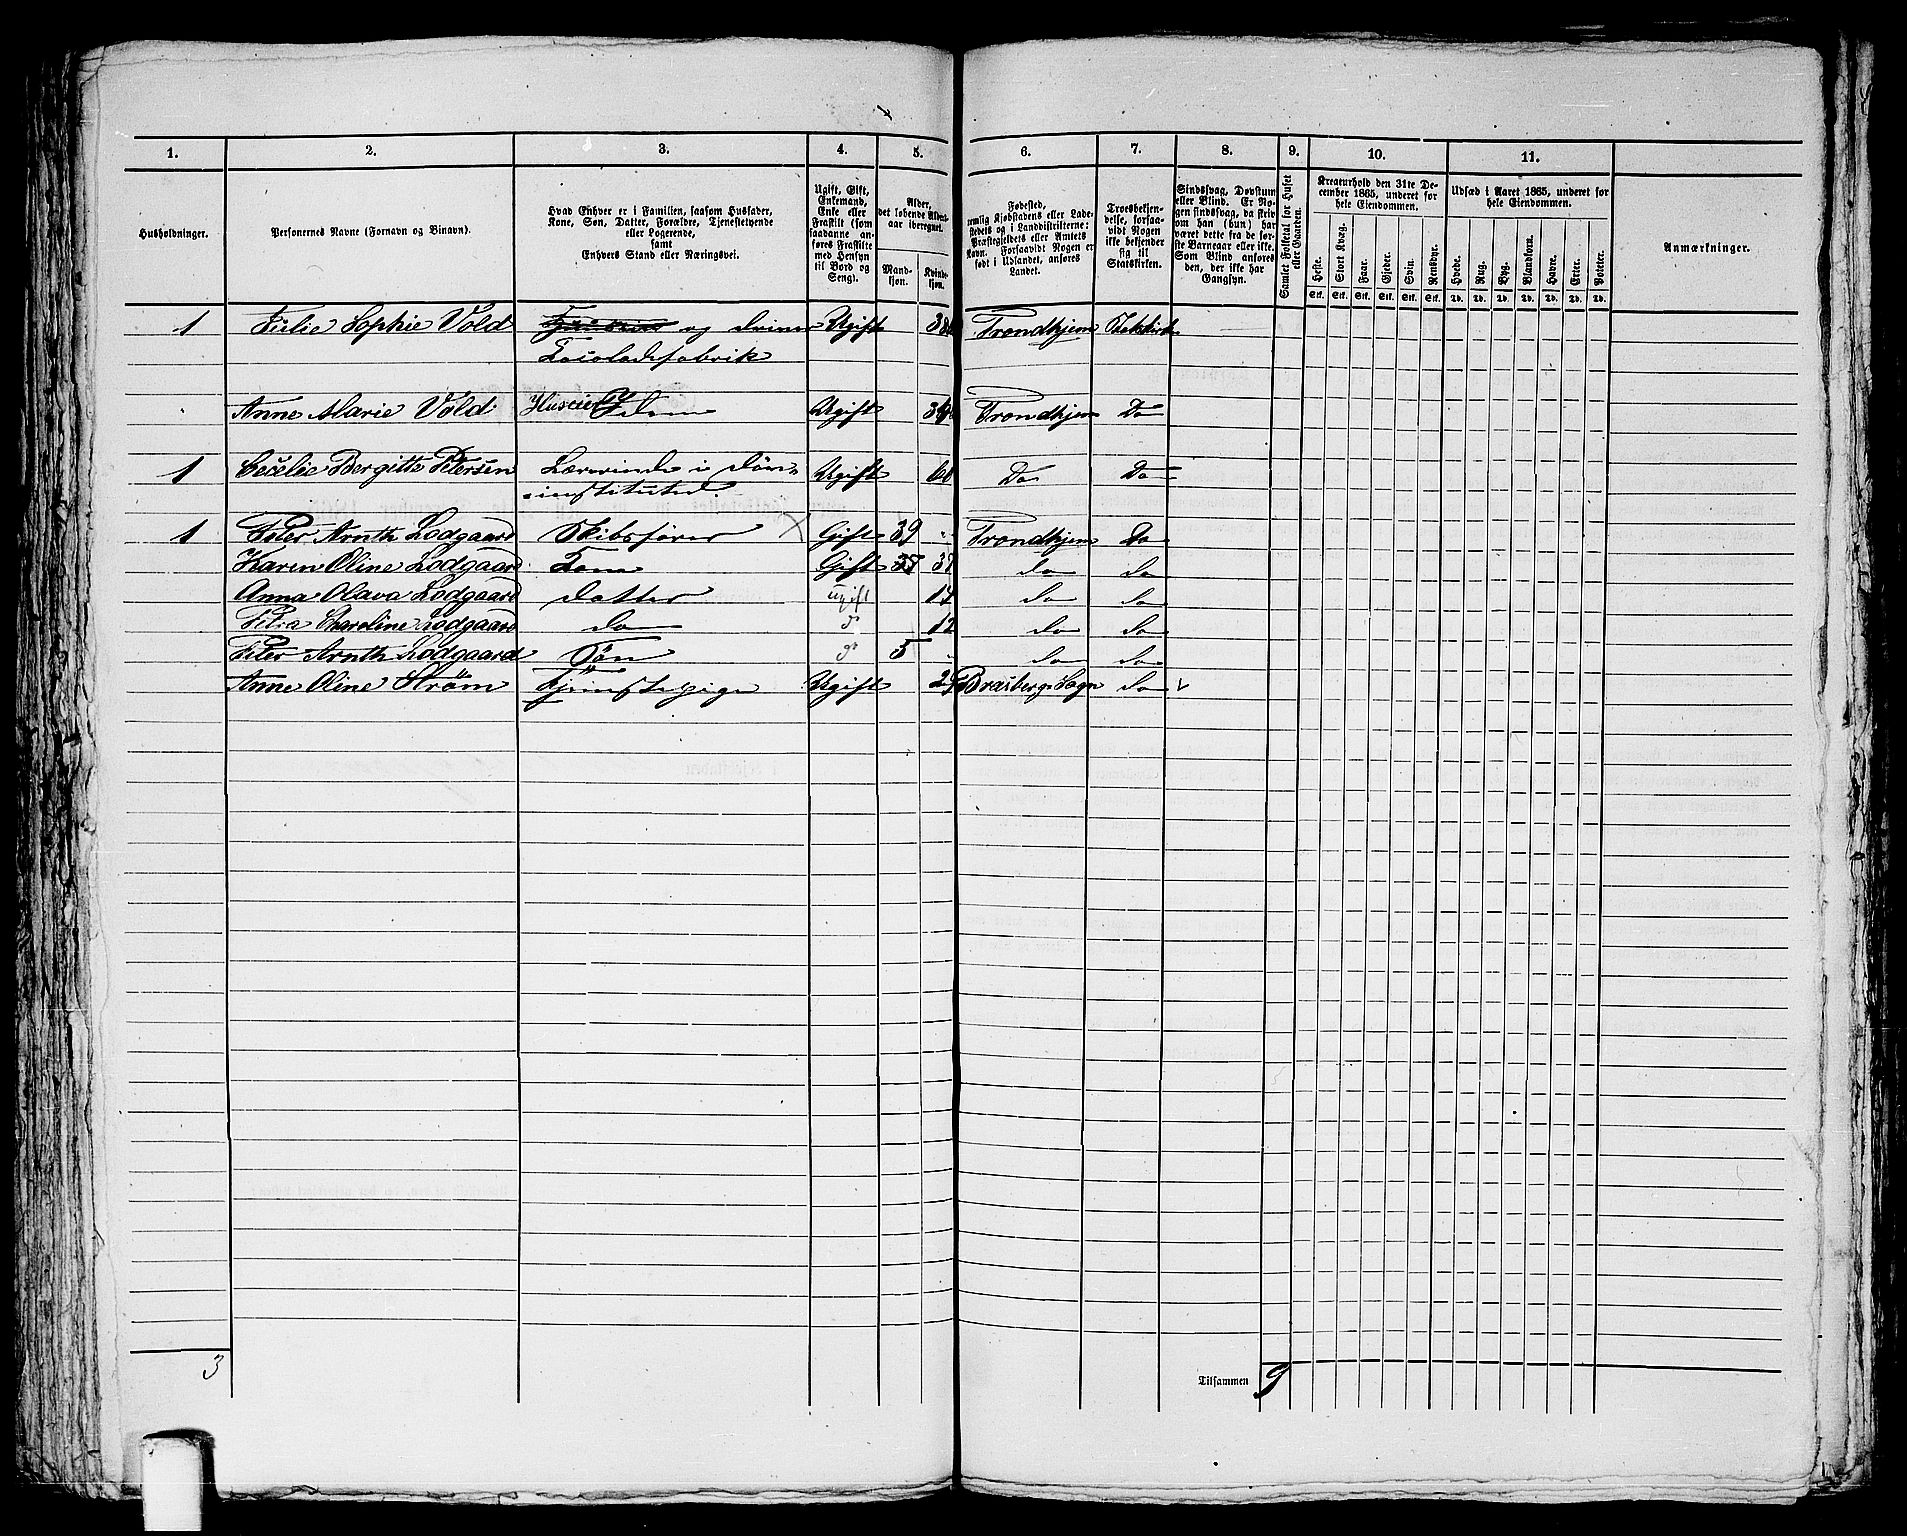 1. 2. 3. 4. 5. 6. 7. 8. 9. 10. 11.
Husholdninger.
Personernes Navne (Fornavn og Binavn).
Hvad Enhver er i Familien, saasom Husfader,
Kone, Søn, Datter, Forældre, Tjenestetyende
eller Logerende,
samt
Enhvers Stand eller Næringsvei.
Ugift, Gift,
Enkemand,
Enke eller
Fraskilt (som
saadanne an-
føres Fraskilte
med Hensyn
til Bord og
Seng).
Alder,
det løbende Alders-
aar iberegnet.
Mand-
kjøn.
Kvinde-
kjøn.
Fødested,
nemlig Kjøbstadens eller Lade-
stedets og i Landdistrikterne:
Præstegjeldets eller Amtets
Navn. Forsaavidt Nogen er
født i Udlandet, anføres
Landet.
Troesbekjen-
delse, forsaa-
vidt Nogen
ikke bekjender
sig til
Statskirken.
Sindssvag, Døvstum
eller Blind. Er No-
gen sindssvag, da skriv
om han (hun) har
været dette fra de før-
ste Barneaar eller ikke.
Som Blind anføres
den, der ikke har
Gangsyn.
Samlet Folketal for Huset
eller Gaarden.
Kreaturhold den 31te De-
cember 1865, underet for
hele Eiendommen.
Heste. Stort Kvæg. Faar. Gjeder. Svin. Rensdyr.
Stk. Stk. Stk. Stk. Stk. Stk.
Udsæd i Aaret 1865, underet for
hele Eiendommen.
Hvede. Rug. Byg. Blandkorn. Havre. Erter. Poteter.
Td. Td. Td. Td. Td. Td. Td.
Anmærkninger.
1 Julie Sophie Vold og driver Ugift Trondhjem
Anne Marie Vold Idem Ugift Trondhjem Do
1 Cecelie Bergitte Petersen Lærerinde i Døv- Ugift Do Do
institutet.
1 Peter Arnth Lodgaard Skibsfører Gift 39 Trondhjem Do
Karen Oline Lodgaard Kone Gift 38 do do
Anna Olava Lodgaard datter ugift do do
Petra Charoline Lodgaard do do 12 do do
Peter Arnth Lodgaard Søn do 5 do do
Anne Oline Strøm Tjenstepige Ugift Sogn do
3
Tilsammen 9